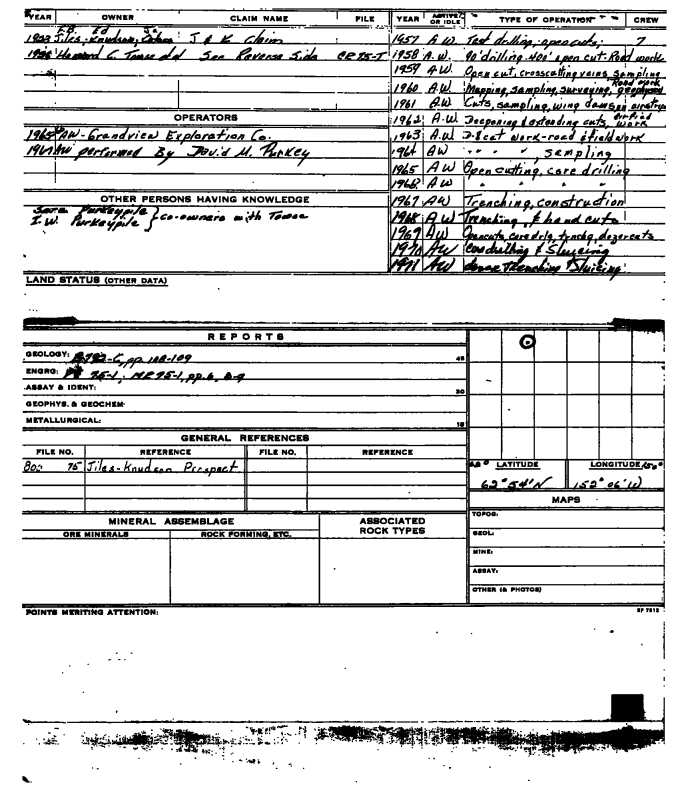 YEAR OWNER CLAIM NAME FILE
F.B. Ed
1953 Jiles, Knudson, J & K Claim
1958 Howard C. See Reverse Side
OPERATORS
AW-Grandview Exploration Co.
AW performed By David M. Purkey
OTHER PERSONS HAVING KNOWLEDGE
Purkeypile } co-owners with Towse
I.W. Purkeypile
LAND STATUS (OTHER DATA)
YEAR ACTIVE OR IDLE TYPE OF OPERATION CREW
1957 A W. Test drilling, open cuts; 7
1958 A.W. 90' drilling. 400' open cut-Road work
1959 AW. Open cut, crosscutting veins, sampling
Road work
1960 A.W. Mapping, sampling, surveying, geophysical
1961 A.W. Cuts, sampling, wing dams on airstrip
1962 A.W Deepening & extending cuts, airfield work
1963 A.W D-8 cat work-road & fieldwork
1964 AW " " " , sampling
1965 AW Open cutting, core drilling
1966 AW " " " "
1967 AW Trenching, construction
1968 AW Trenching & hand cuts
1969 AW Opencuts, core drlg, trnchg, dozercuts
1970 AW Core drilling & Sluicing
1971 AW Trenching & Sluicing
REPORTS
GEOLOGY: pp. 108-109
45
ENGRG: 75-1; MR 75-1, pp. 6, 8-9
ASSAY & IDENT:
30
GEOPHYS. & GEOCHEM.
METALLURGICAL:
15
GENERAL REFERENCES
FILE NO. REFERENCE FILE NO. REFERENCE
75 Jiles-Knudson Prospect
LATITUDE LONGITUDE 150°
62° 54' N 152° 06' W
MAPS
TOPOG:
GEOL:
MINE:
ASSAY:
OTHER (& PHOTOS)
MINERAL ASSEMBLAGE ASSOCIATED ROCK TYPES
ORE MINERALS ROCK FORMING, ETC.
POINTS MERITING ATTENTION: